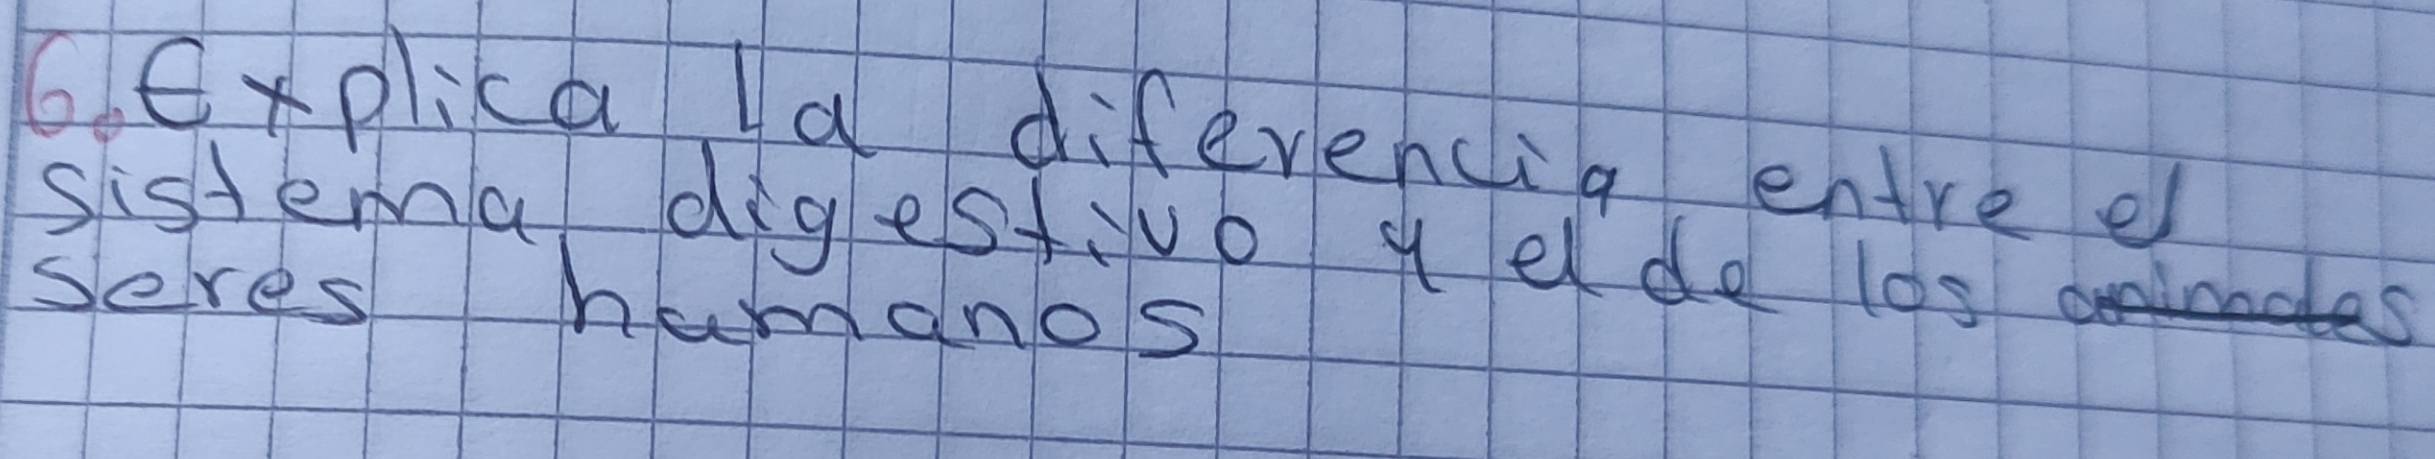 6. Explica la diferencia entre el
sistema digestivo y el de los animales
seres humanos